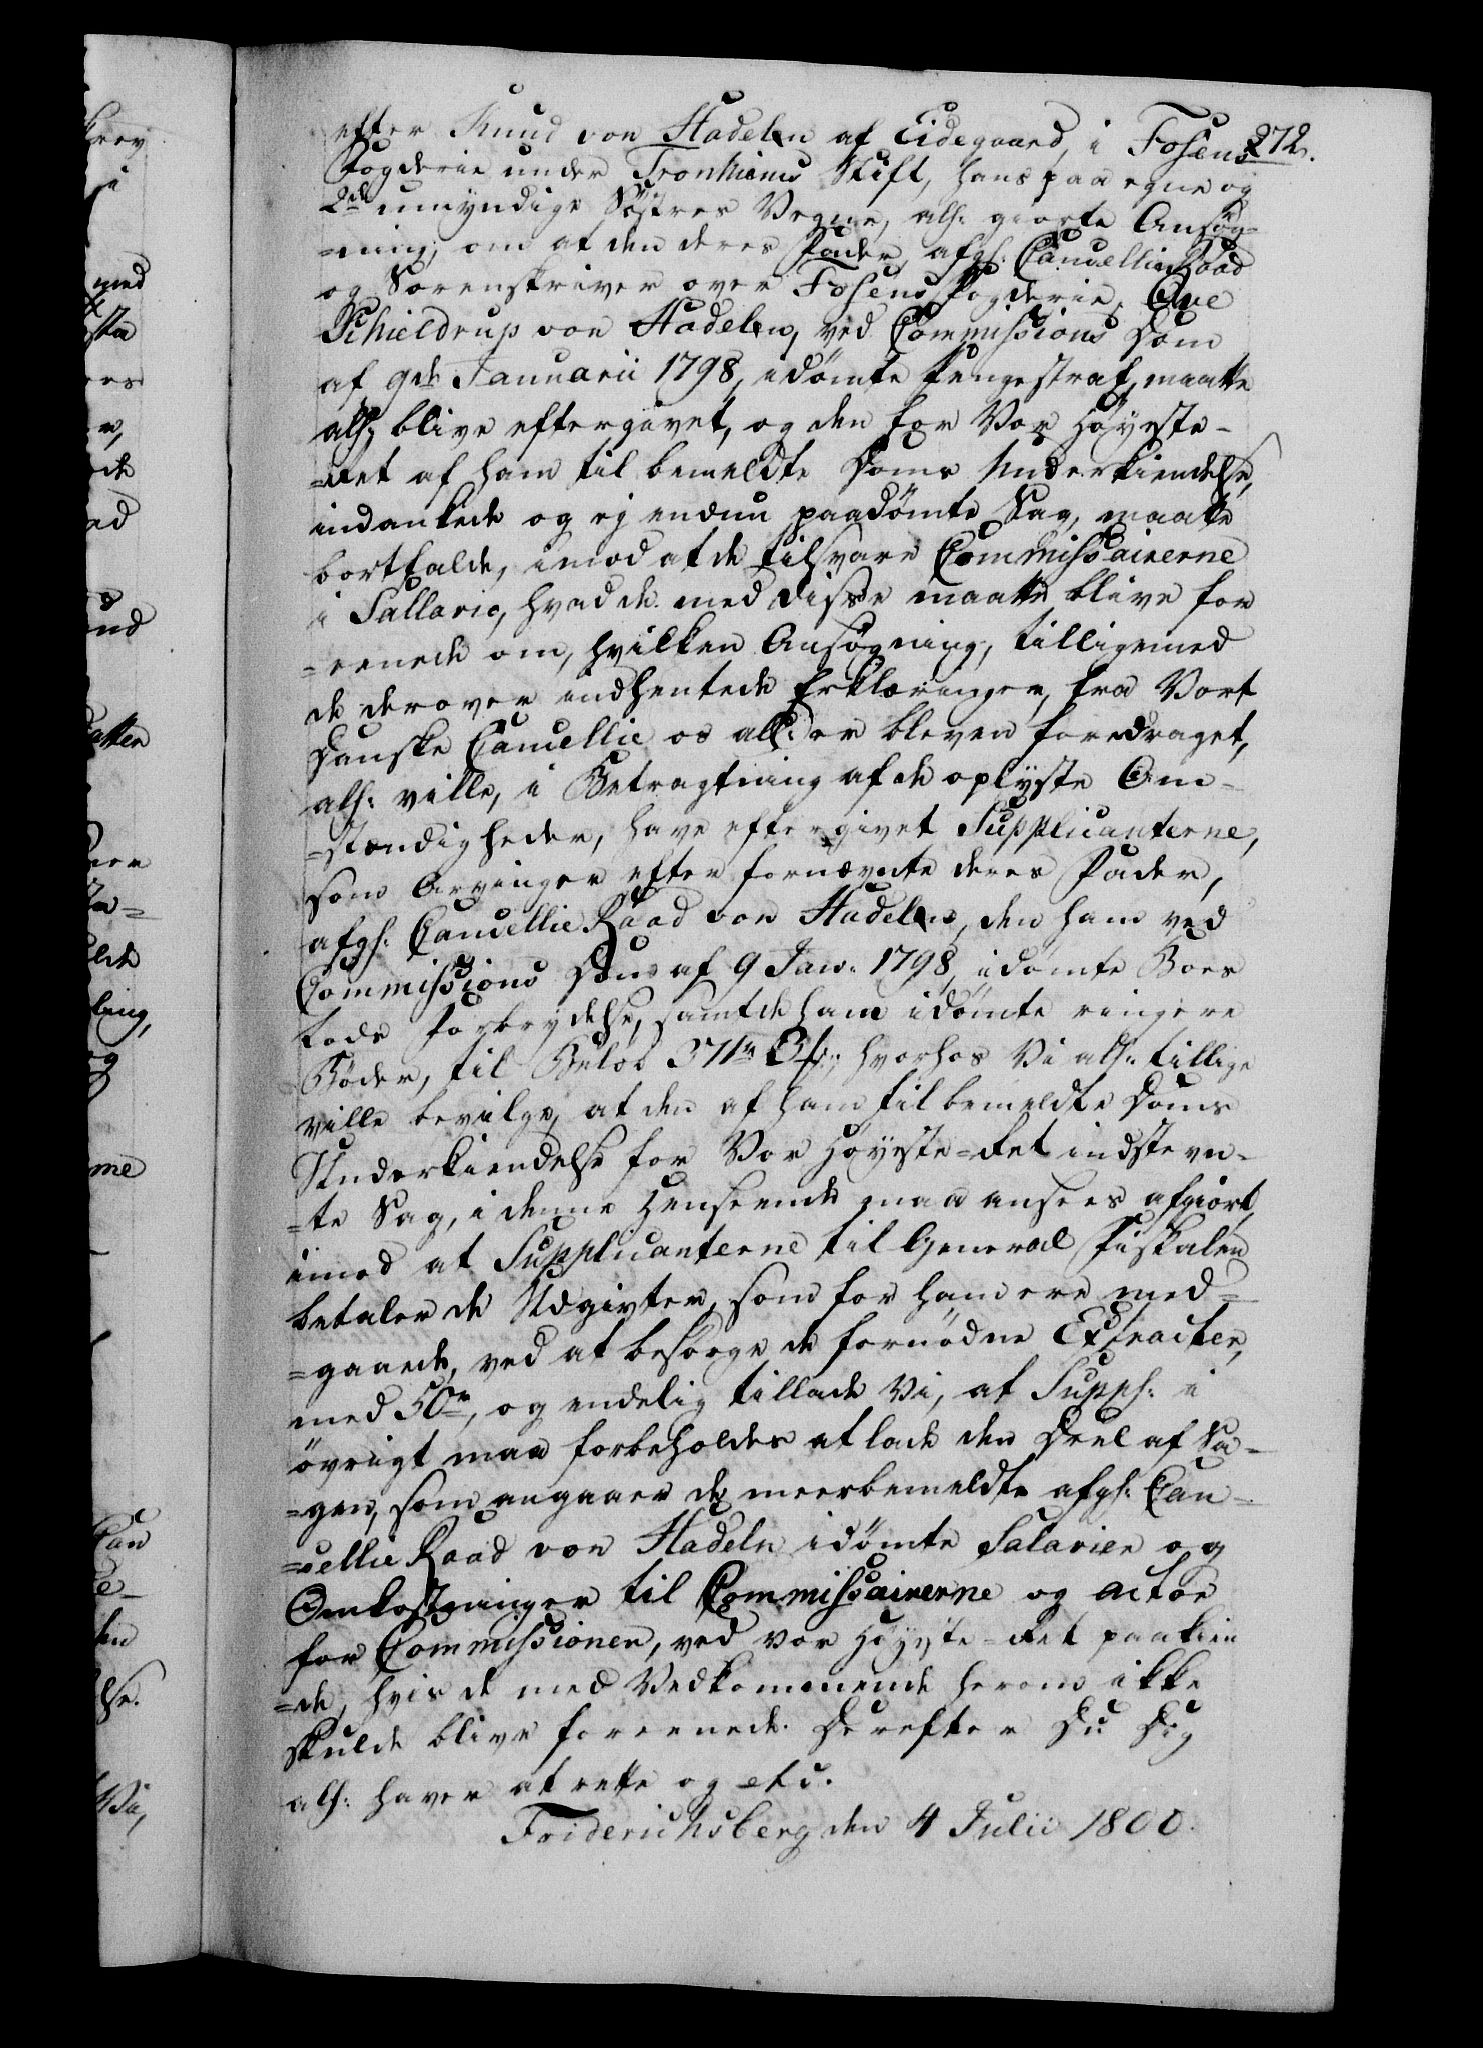 272.
efter Knud von Hadeln af Eidegaard, i Fosens
Fogderie under Tronhiems Stift, hans paa egne og
2de umyndige Söstres Vegne, all: giorte Ansög-
=ning; om at den deres Fader, afg: Cancellie Raad
og Sorenskriver over Fosens Fogderie, Ove
Schieldrup von Hadeln, ved Commissions Dom
af 9de Januarii 1798, idömte Pengestraf, maatte
all: blive eftergivet, og den for Vor Höyeste-
=Ret af ham til bemeldte Doms Underkiendelse,
indankede og ej endnu paadömte Sag, maatte
bortfalde, imod at de tilsvare Commissairerne
i Sallario, hvad de med disse maatte blive for
=eenede om, hvilken Ansögning, tilligemed
de derover indhentede Erklæringer, fra Vort
Danske Cancellie os all: er bleven foredraget,
all: ville, i Betragtning af de oplyste Om-
=stændigheder, have eftergivet Supplicanterne,
som Arvinger efter fornævnte deres Fader,
afg: Cancellie Raad von Hadeln, den ham ved
Commissions Dom af 9 Jan: 1798, idömte Boes
lods Forbrydelse, samt de ham idömte ringere
Böder, til Belöb 371 rd, hvorhos Vi all: tillige
ville bevilge, at den af ham til bemeldte Doms
Underkiendelse for Vor Höyeste=Ret indstevn-
=te Sag, i denne Henseende maa ansees afgiort,
imod at Supplicanterne til General Fiskalen
betaler de Udgivter, som for ham ere med-
=gaaede, ved at besörge de fornödne Extracter,
med 50 rd, og endelig tillade Vi, at Suppl: i
övrigt maa forbeholdes at lade den Deel af Sa-
=gen, som angaaer de meerbemeldte afg: Can-
=cellie Raad von Hadeln idömte Salarier og
Omkostninger til Commissairerne og Actor
for Commissionen, ved Vor Höyeste-Ret paakien
=de, hvis de med Vedkommende herom ikke
skulde blive foreenede. Derefter Du Dig
all: haver at rette og etc.
Friderichsberg den 4 Julii 1800.